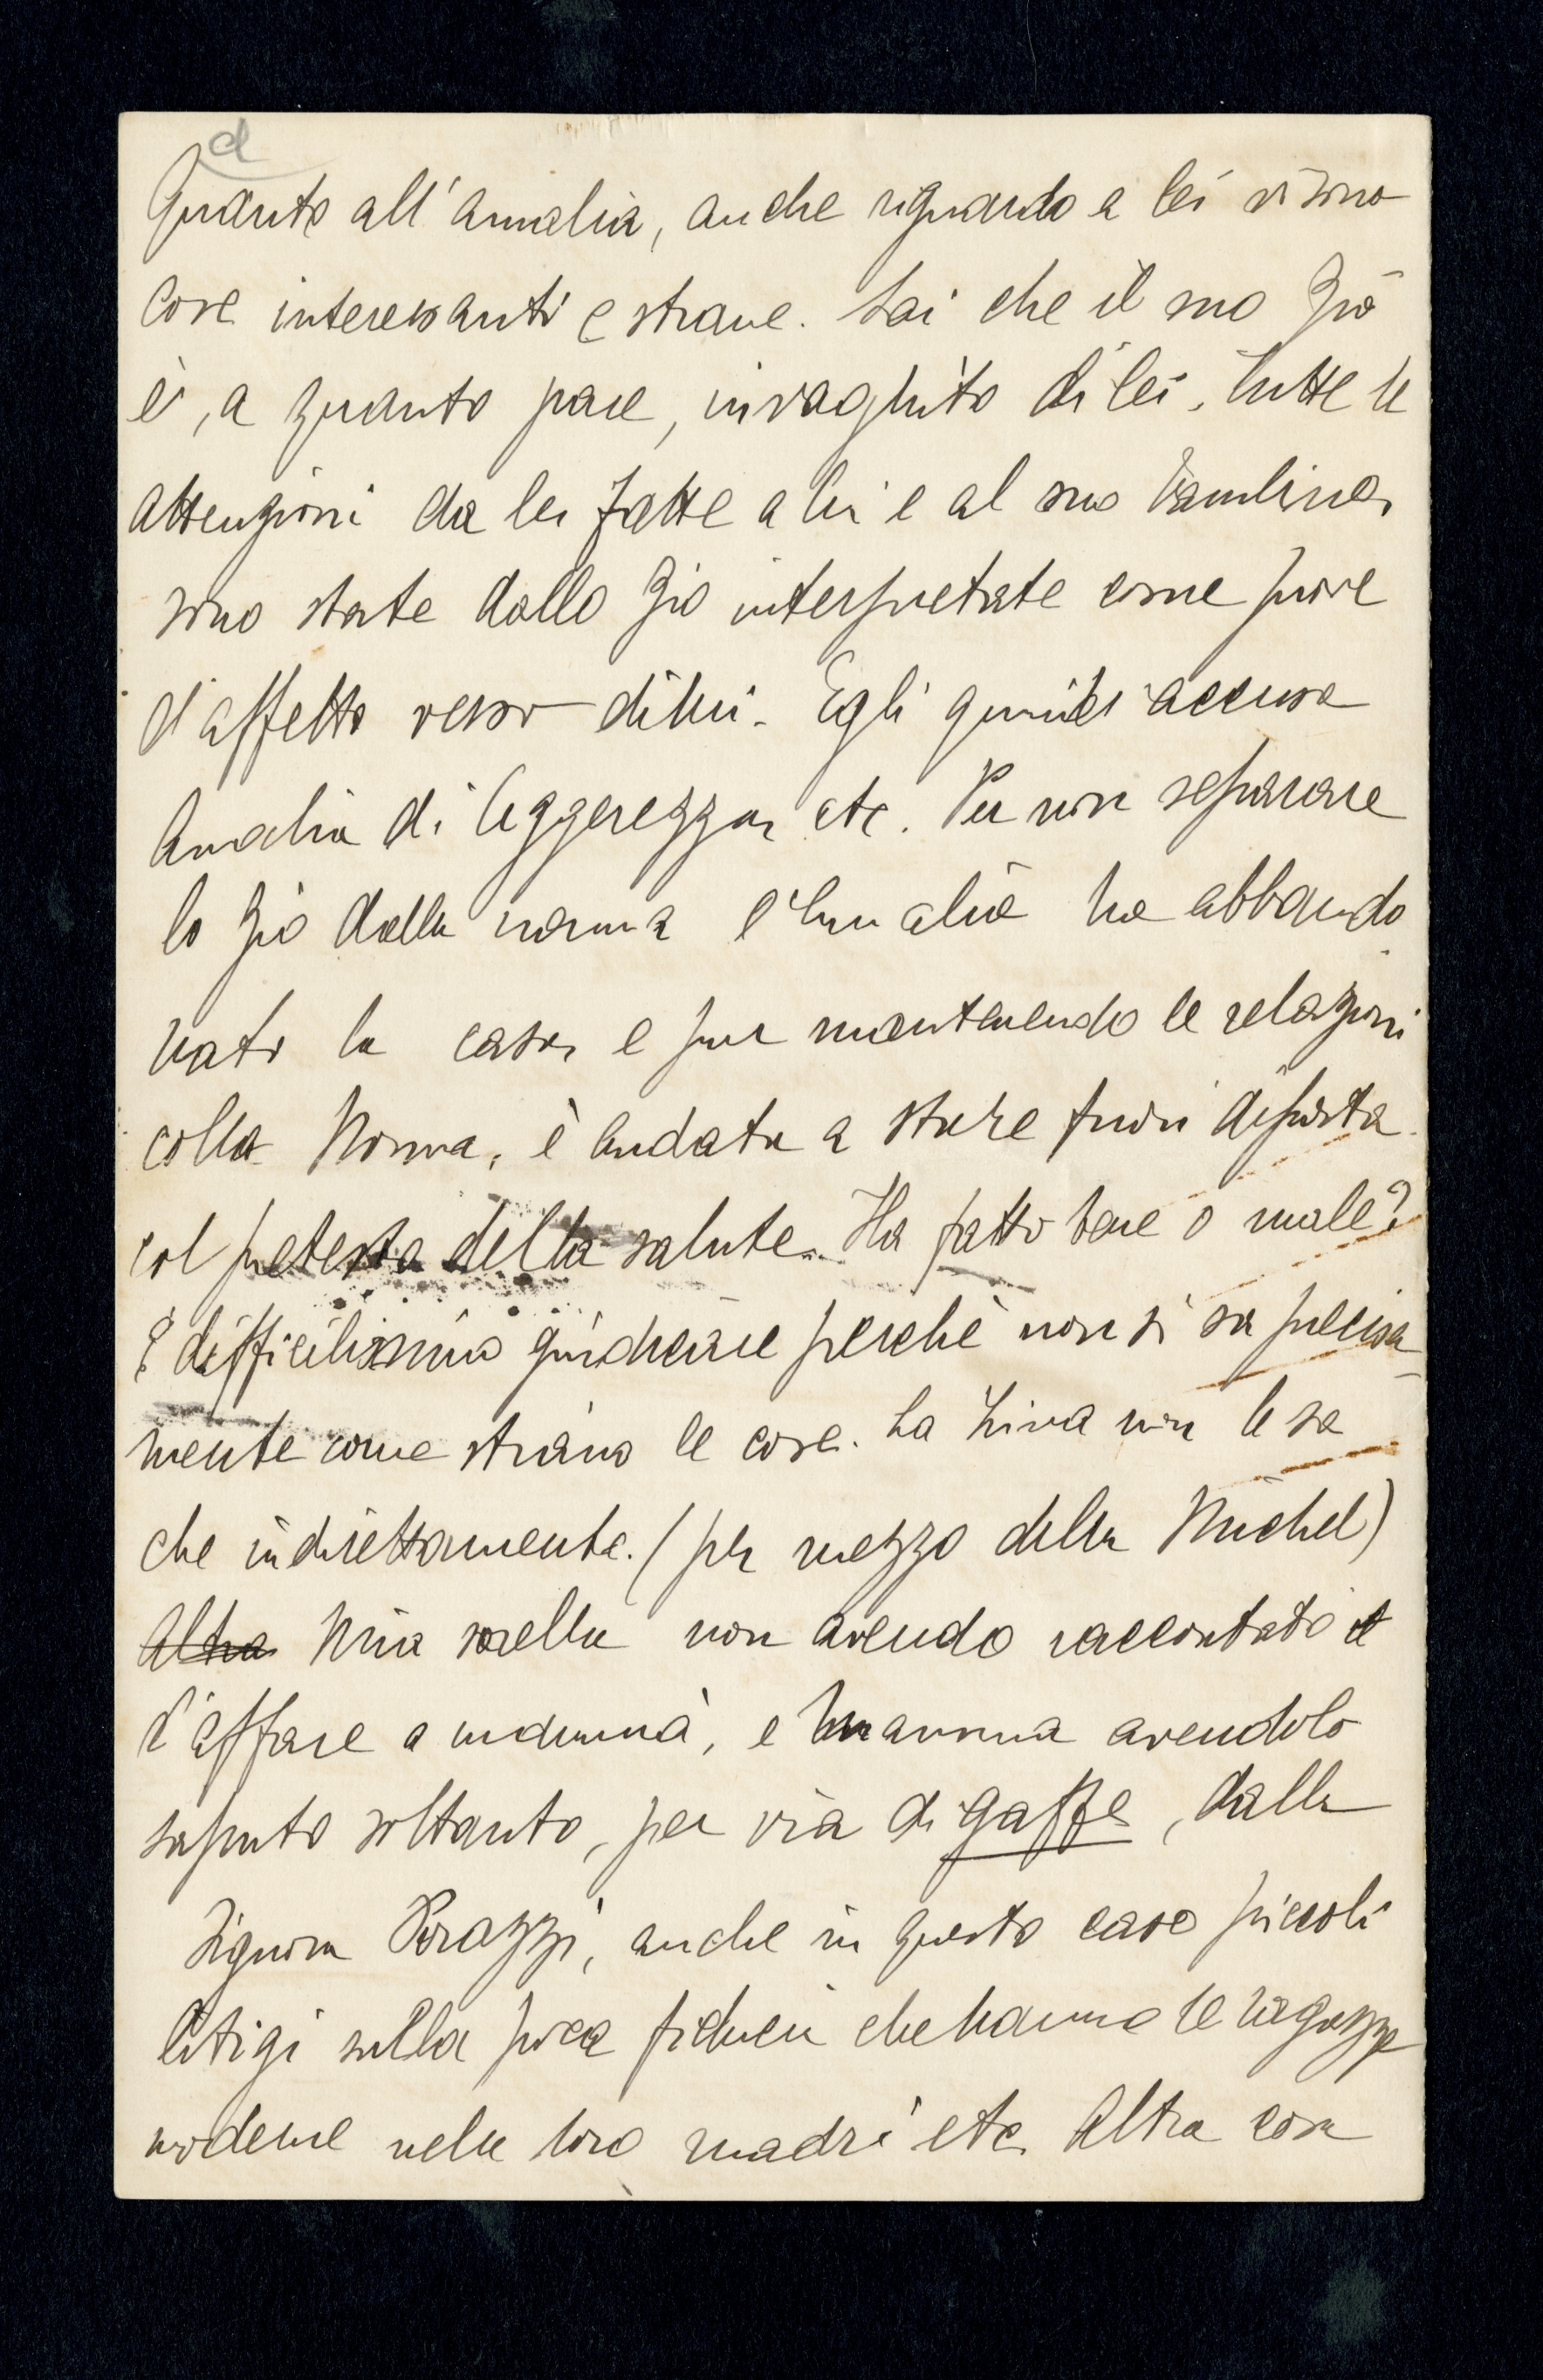 d
Quanto all'Amalia, anche riguardo a lei vi sono
cose interessanti e strane. Sai che il suo zio
è, a quanto pare, invaghito di lei. Tutte le
attenzioni da lei fatte a lui e al suo bambino,
sono state dallo zio interpretate come prove
d'affetto verso di lui. Egli quindi accusa
Amalia di leggerezza, etc. Per non separare
lo zio dalla nonna l'Amalia ha abbando
nato la casa, e pur mantenendo le relazioni
colla Nonna, è andata a stare fuori di porta
col pretesto della salute. Ha fatto bene o male?
È difficilissimo giudicare perchè non si sa precisa
mente come stiano le cose. La Lina non le sa
che indirettamente. (per mezzo della Michel)
Altra Mia sorella non avendo raccontato
l'affare a mammà, e mamma avendolo
saputo soltanto, per via di gaffe, dalla
Signora Perazzi, anche in questo caso piccoli
litigi sulla poca fiducia che hanno le ragazze
moderne nelle loro madri etc. Altra cosa